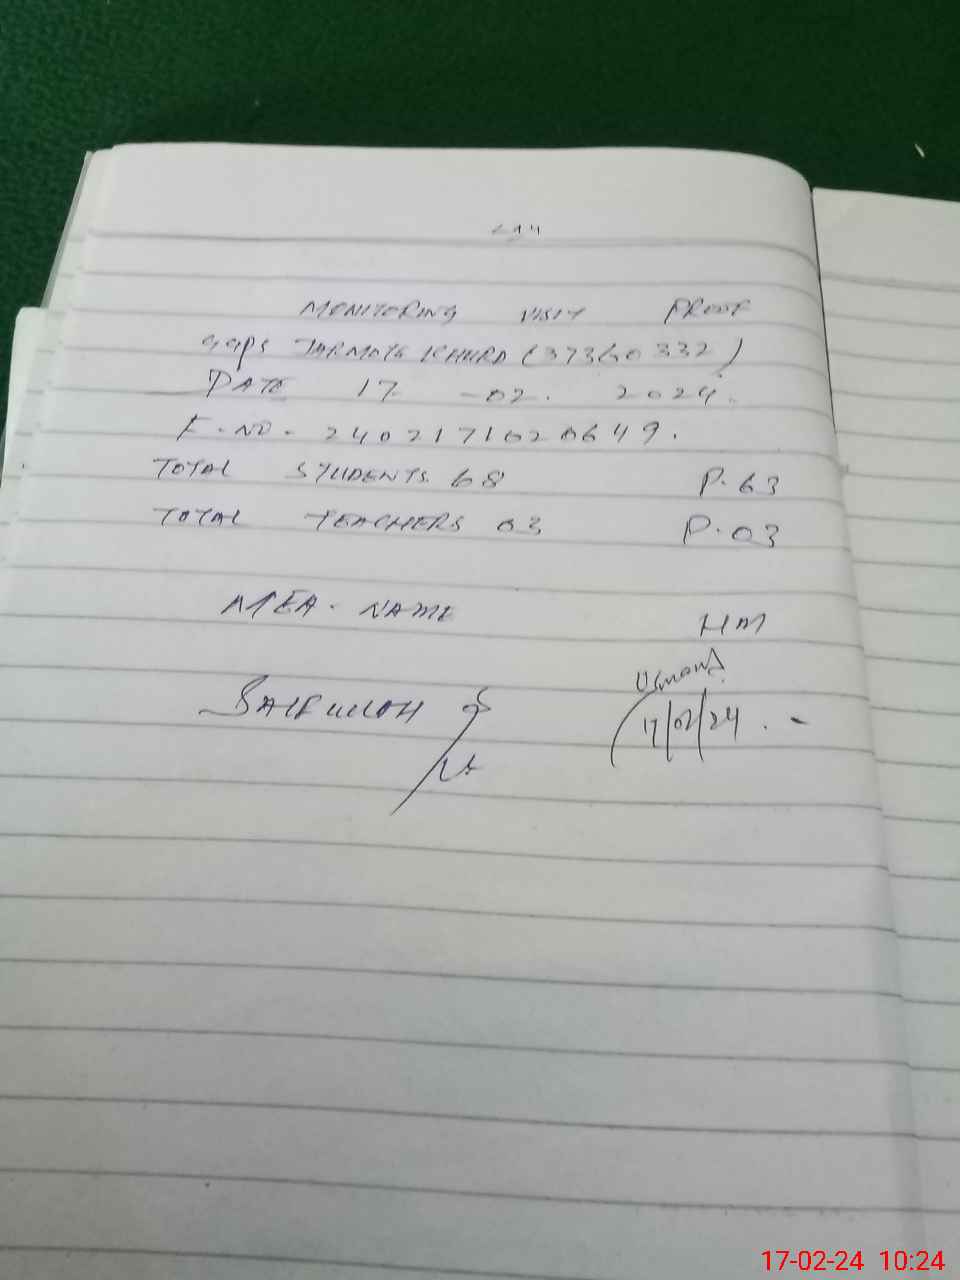 MONITORING VISIT PROOF
GGPS JARMOTE KHURD (37360332)
DATE 17 -02. 2024.
F.NO. 2402171020649.
TOTAL STUDENTS 68 P.63
TOTAL TEACHERS 03 P.03
MEA. NAME HM
17/02/24.
17-02-24 10:24